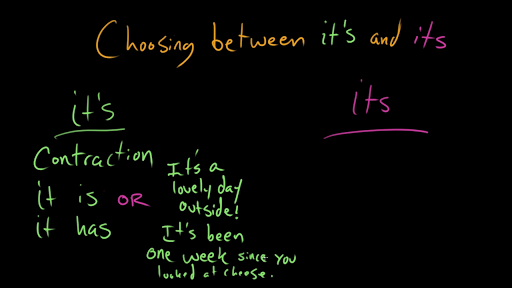 Choosing between it's and its
it's
its
Contraction
it is OR
it has
It's a
lovely day
outside!
It's been
one week since you
looked at cheese.